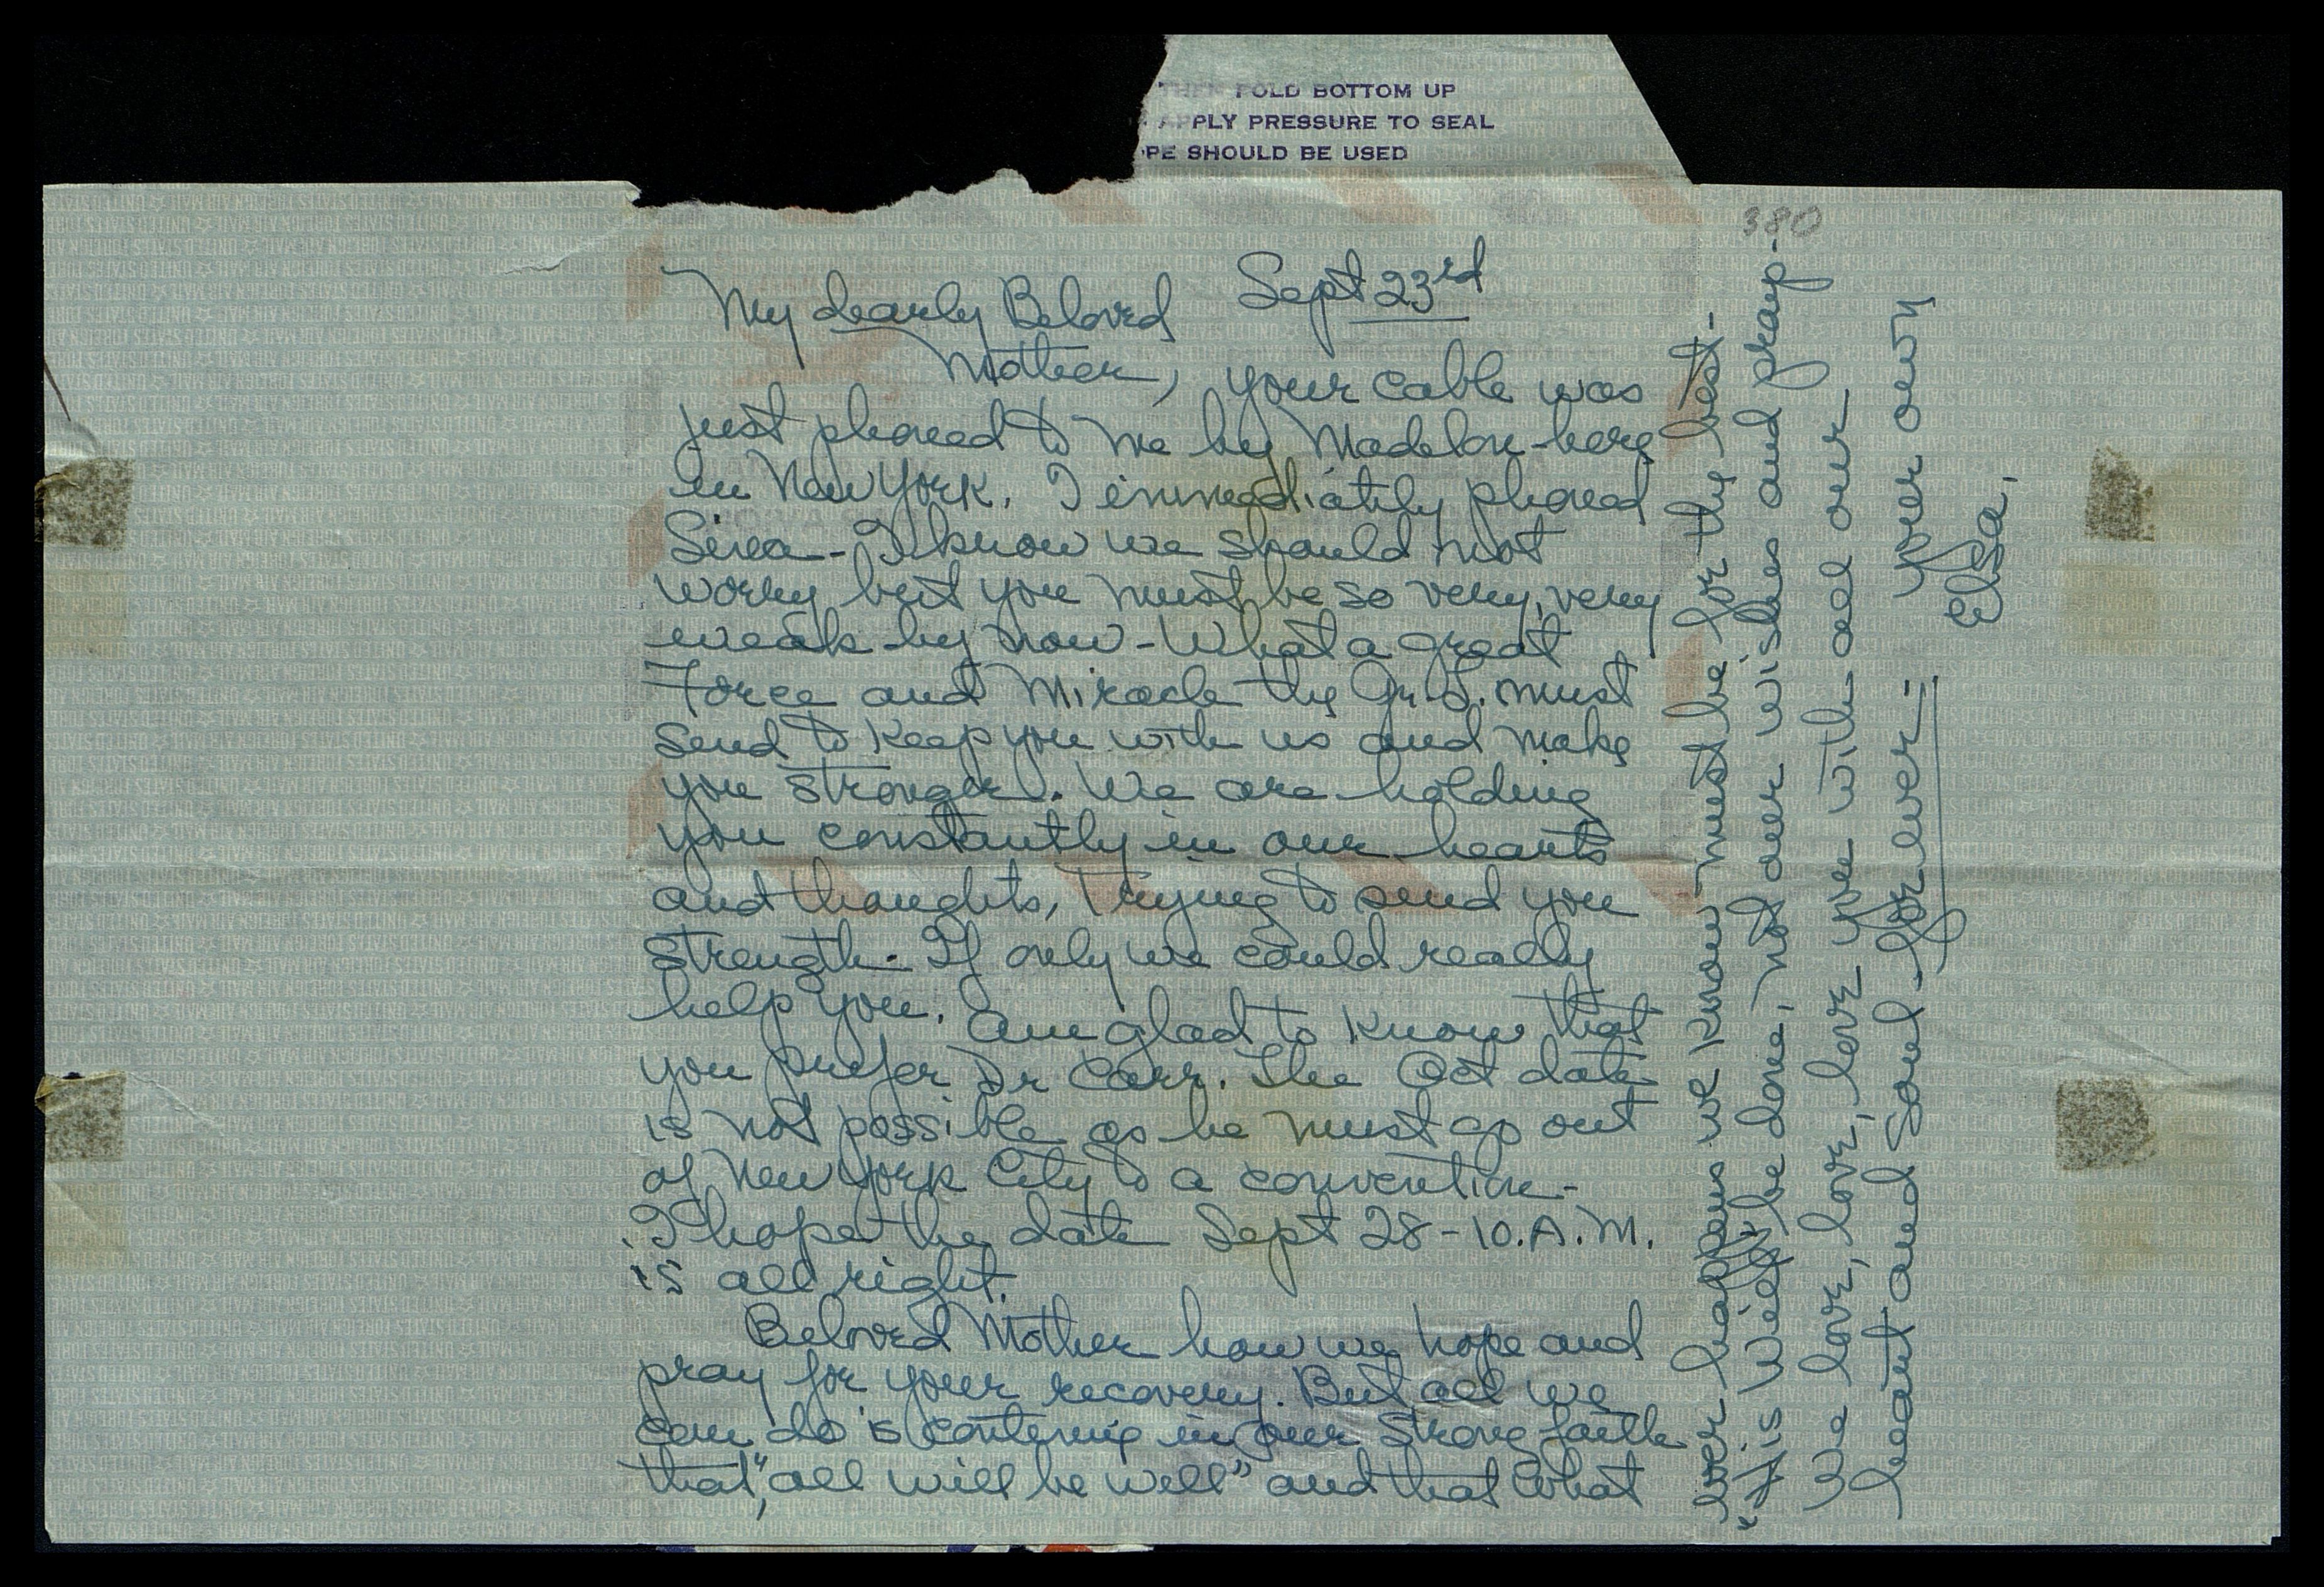 THEN FOLD BOTTOM UP
APPLY PRESSURE TO SEAL
OPE SHOULD BE USED
380
Sept 23rd
My dearly Beloved
Mother, your cable was
just phoned to me by Madelon-here
in New York. I immediately phoned
Sina - I know we should not
worry but you must be so very, very
weak by now - What a great
Force and Miracle the Gr. L. must
send to keep you with us and make
you stronger. We are holding
you constantly in our hearts
and thoughts, trying to send you
strength. If only we could really
help you. Am glad to know that
you prefer Dr Carr. The Oct date
is not possible as he must go out
of New York City to a convention -
I hope the date Sept 28 - 10. A.M.
is all right.
Beloved Mother how we hope and
pray for your recovery. But all we
can do is continue in our strong faith
that, "all will be well" and that what
ever happens we know must be for the best -
"His Will" be done, not our wishes and pray -
We love, love, love you with all our
heart and soul - for ever - Your own
Elsa.